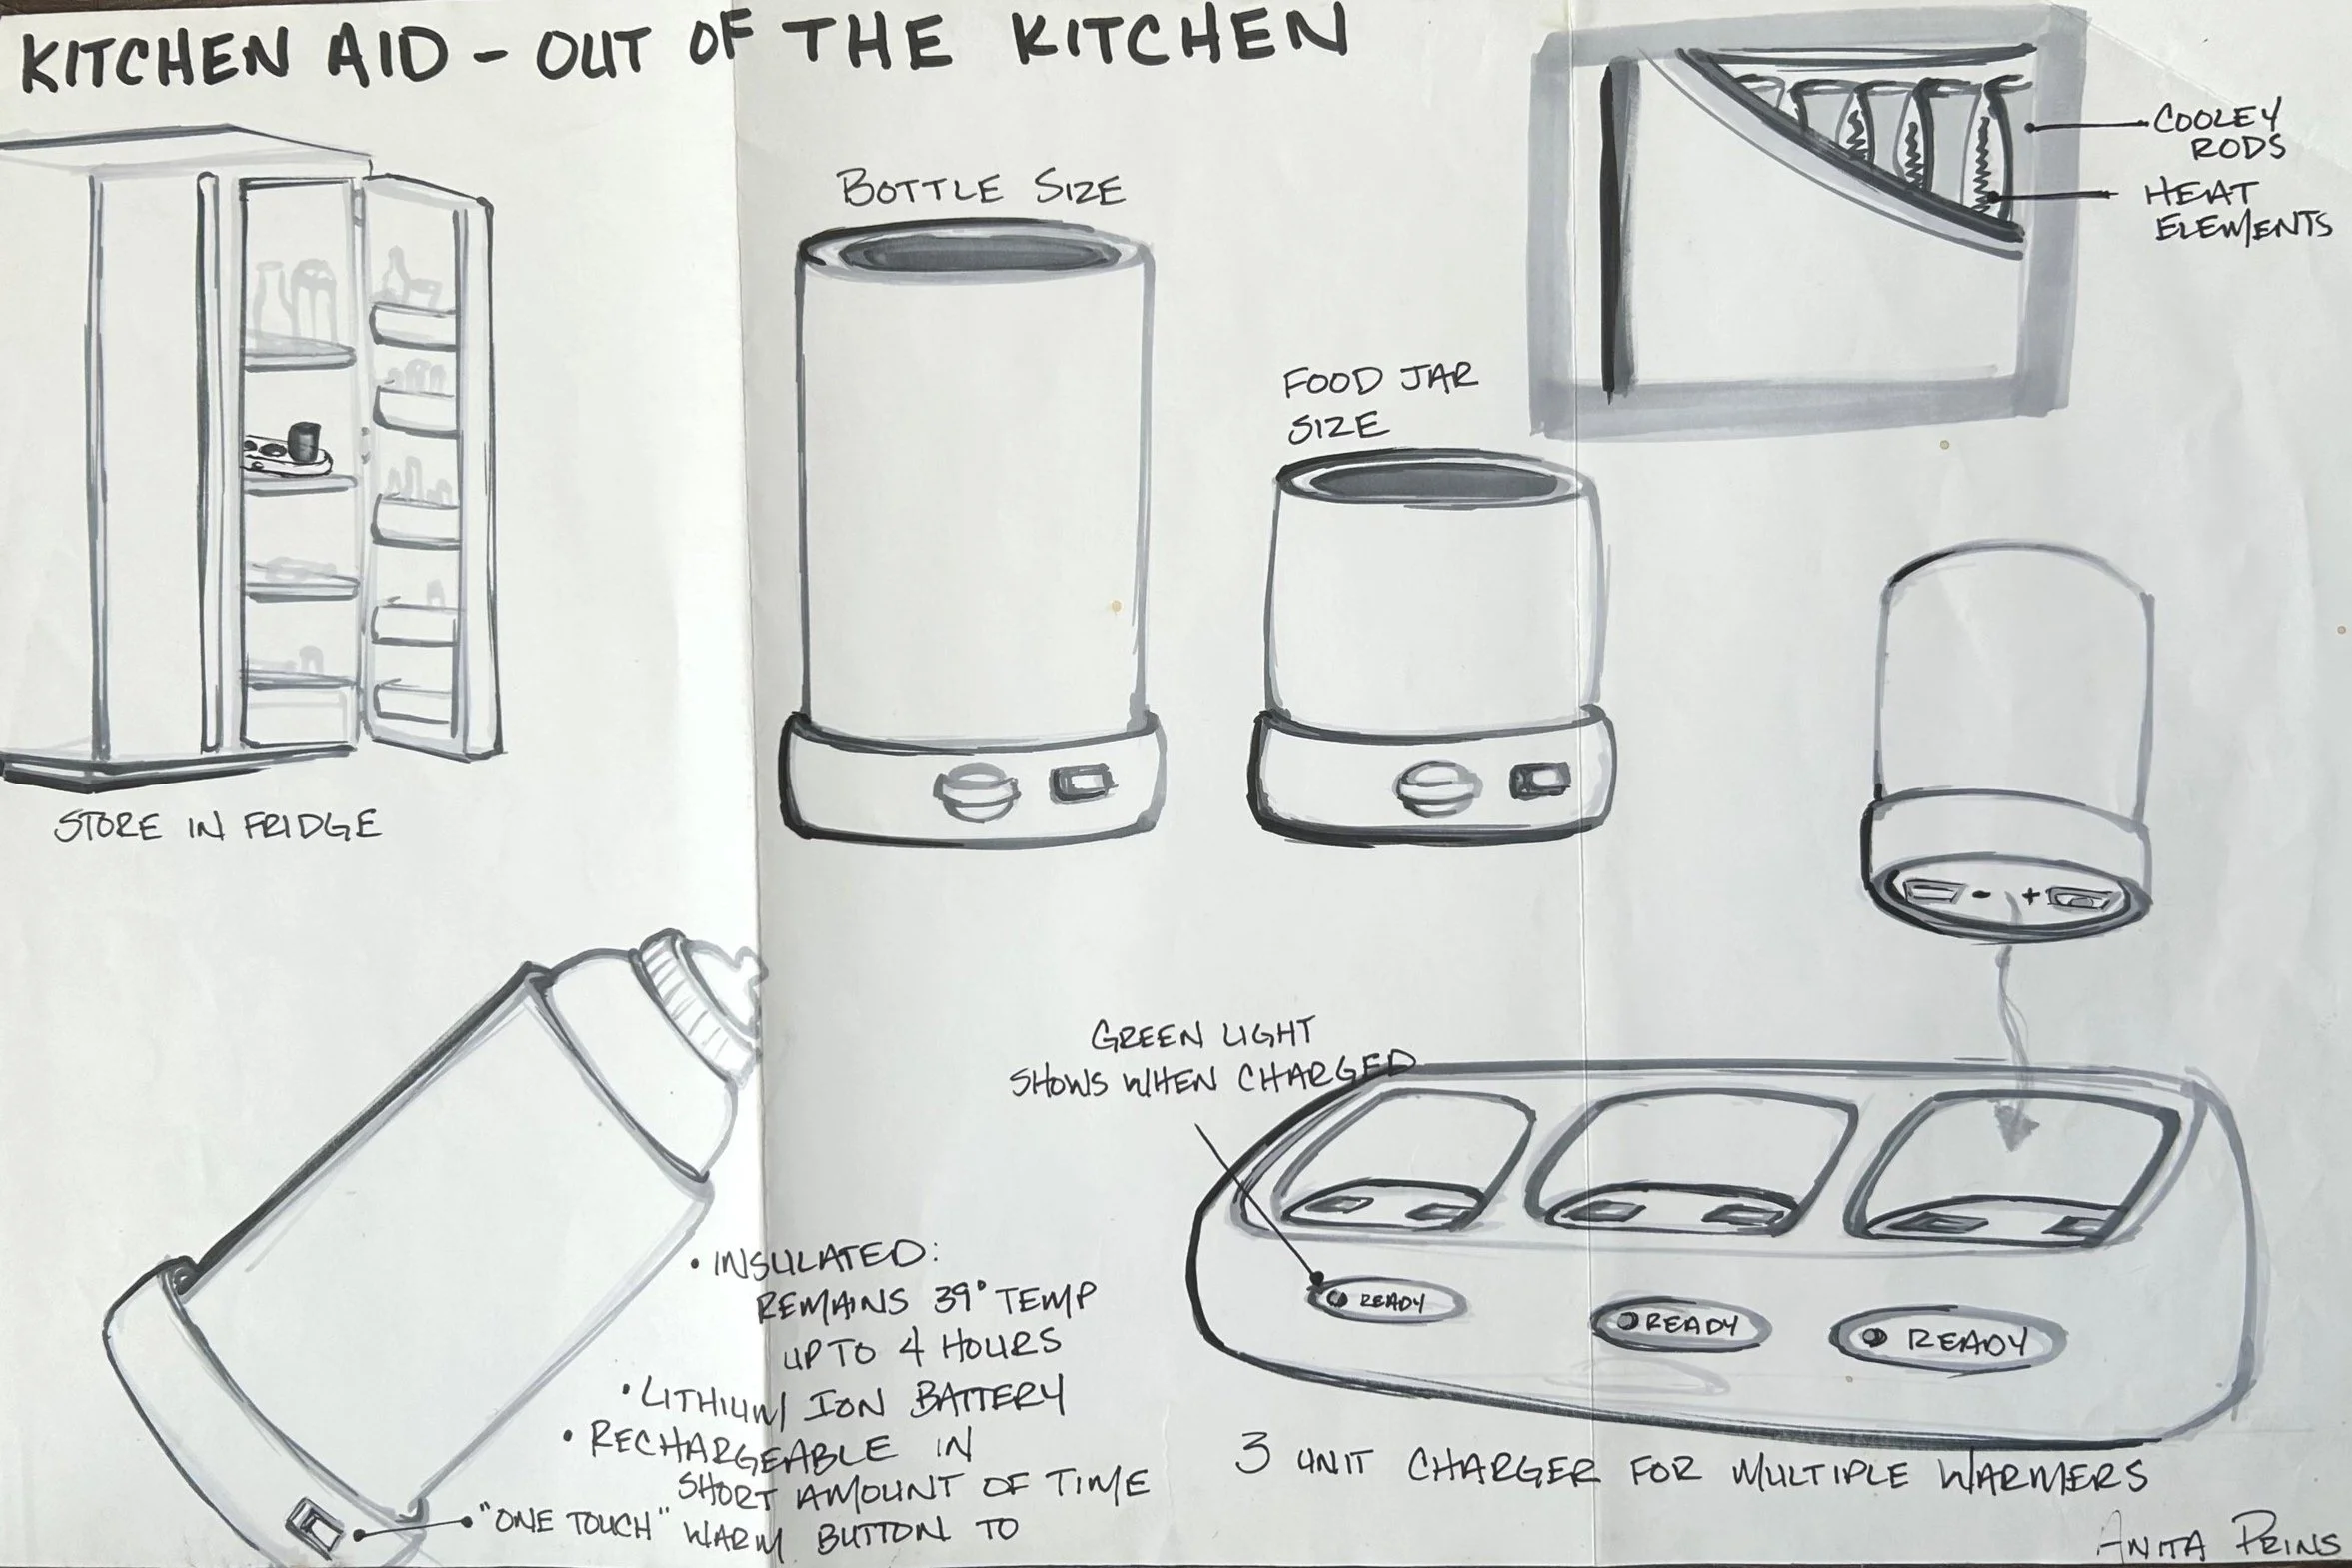 KITCHEN AID - OUT OF THE KITCHEN
COOLEY
RODS
HEAT
ELEMENTS
BOTTLE SIZE
FOOD JAR
SIZE
STORE IN FRIDGE
- +
GREEN LIGHT
SHOWS WHEN CHARGED
• INSULATED:
REMAINS 39° TEMP
UP TO 4 HOURS
• LITHIUM ION BATTERY
• RECHARGEABLE IN
SHORT AMOUNT OF TIME
"ONE TOUCH" WARM BUTTON TO
READY
READY
READY
3 UNIT CHARGER FOR MULTIPLE WARMERS
ANITA PRINS